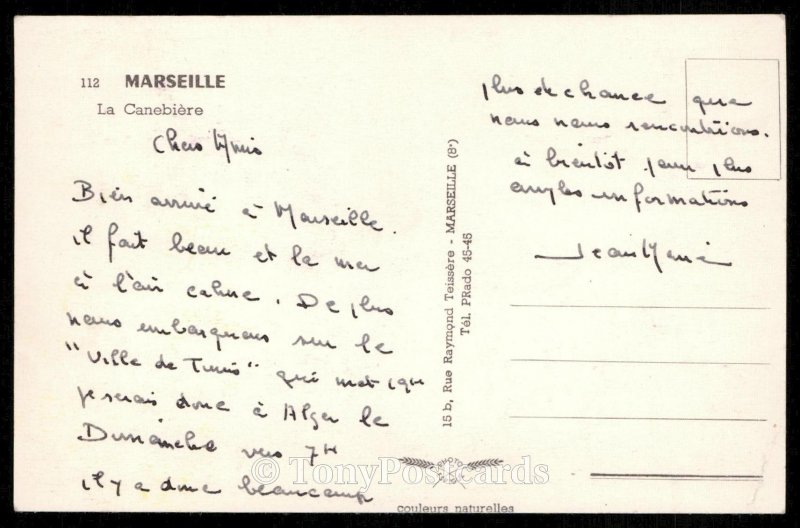 112 MARSEILLE
La Canebière
Chers Amis
Bien arrivé à Marseille.
il fait beau et la mer
à l'air calme. De plus
nous embarquons sur le
"Ville de Tunis" qui met 19H
je serais donc à Alger le
Dimanche vers 7H
il y a donc beaucoup
plus de chance que
nous nous rencontrions.
à bientôt pour plus
amples informations
Jean Marie
15 b, Rue Raymond Teissère - MARSEILLE (8e)
Tél. PRado 45-45
PHOTO
couleurs naturelles
© TonyPostcards